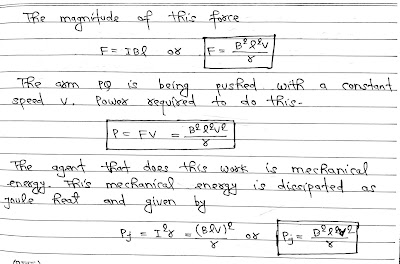 The magnitude of this force
F = IBl or F = B²l²v/r
The arm PQ is being pushed with a constant
speed v. Power required to do this-
P = FV = B²l²v²/r
The agent that does this work is mechanical
energy. This mechanical energy is discipated as
joule heat and given by
Pj = I²r = (Blv)²/r or Pj = B²l²v²/r